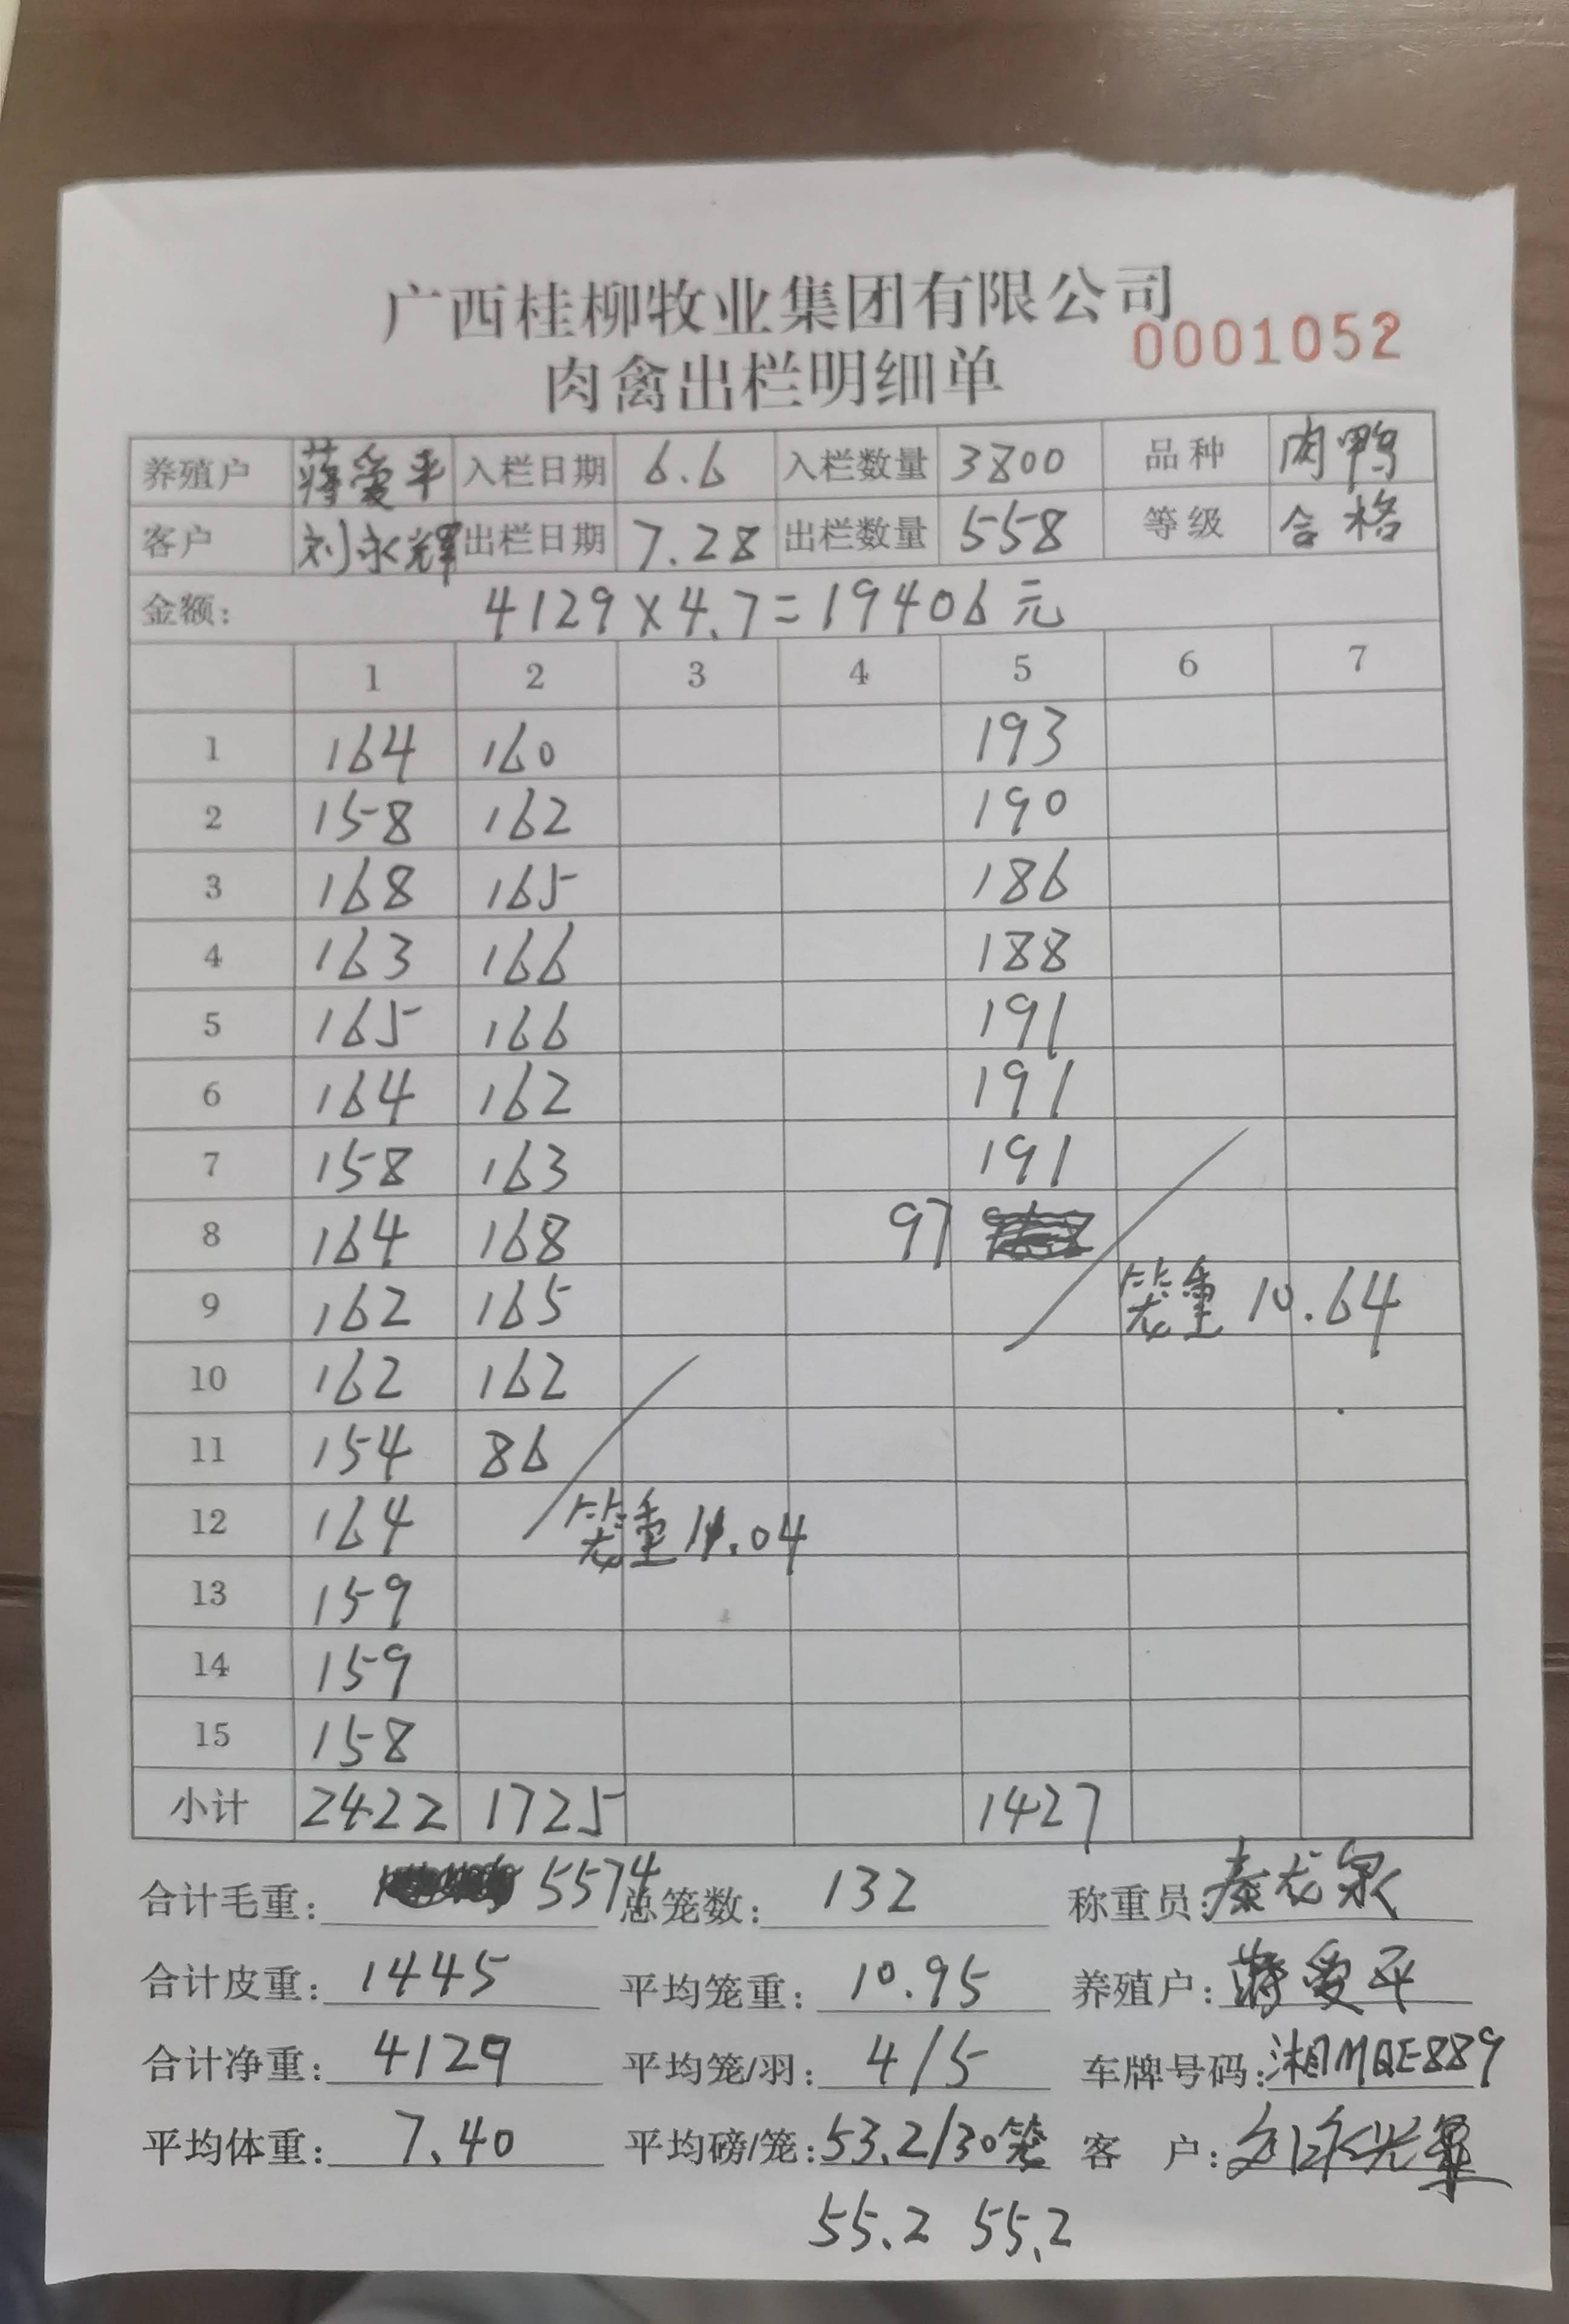 广西桂柳牧业集团有限公司
0001052
肉禽出栏明细单
养殖户 蒋爱平 入栏日期 6.6 入栏数量 3800 品种 肉鸭
客户 刘永辉 出栏日期 7.28 出栏数量 558 等级 合格
金额: 4129×4.7=19406元
1 2 3 4 5 6 7
1 164 160 193
2 158 162 190
3 168 165 186
4 163 166 188
5 165 166 191
6 164 162 191
7 158 163 191
8 164 168 97
9 162 165 笼重 10.64
10 162 162
11 154 86
12 164 笼重 11.04
13 159
14 159
15 158
小计 2422 1725 1427
合计毛重: 5574 总笼数: 132 称重员: 秦龙泉
合计皮重: 1445 平均笼重: 10.95 养殖户: 蒋爱平
合计净重: 4129 平均笼/羽: 4/5 车牌号码: 湘MQE889
平均体重: 7.40 平均磅/笼: 53.2/30笼 客户: 刘永辉
55.2 55.2